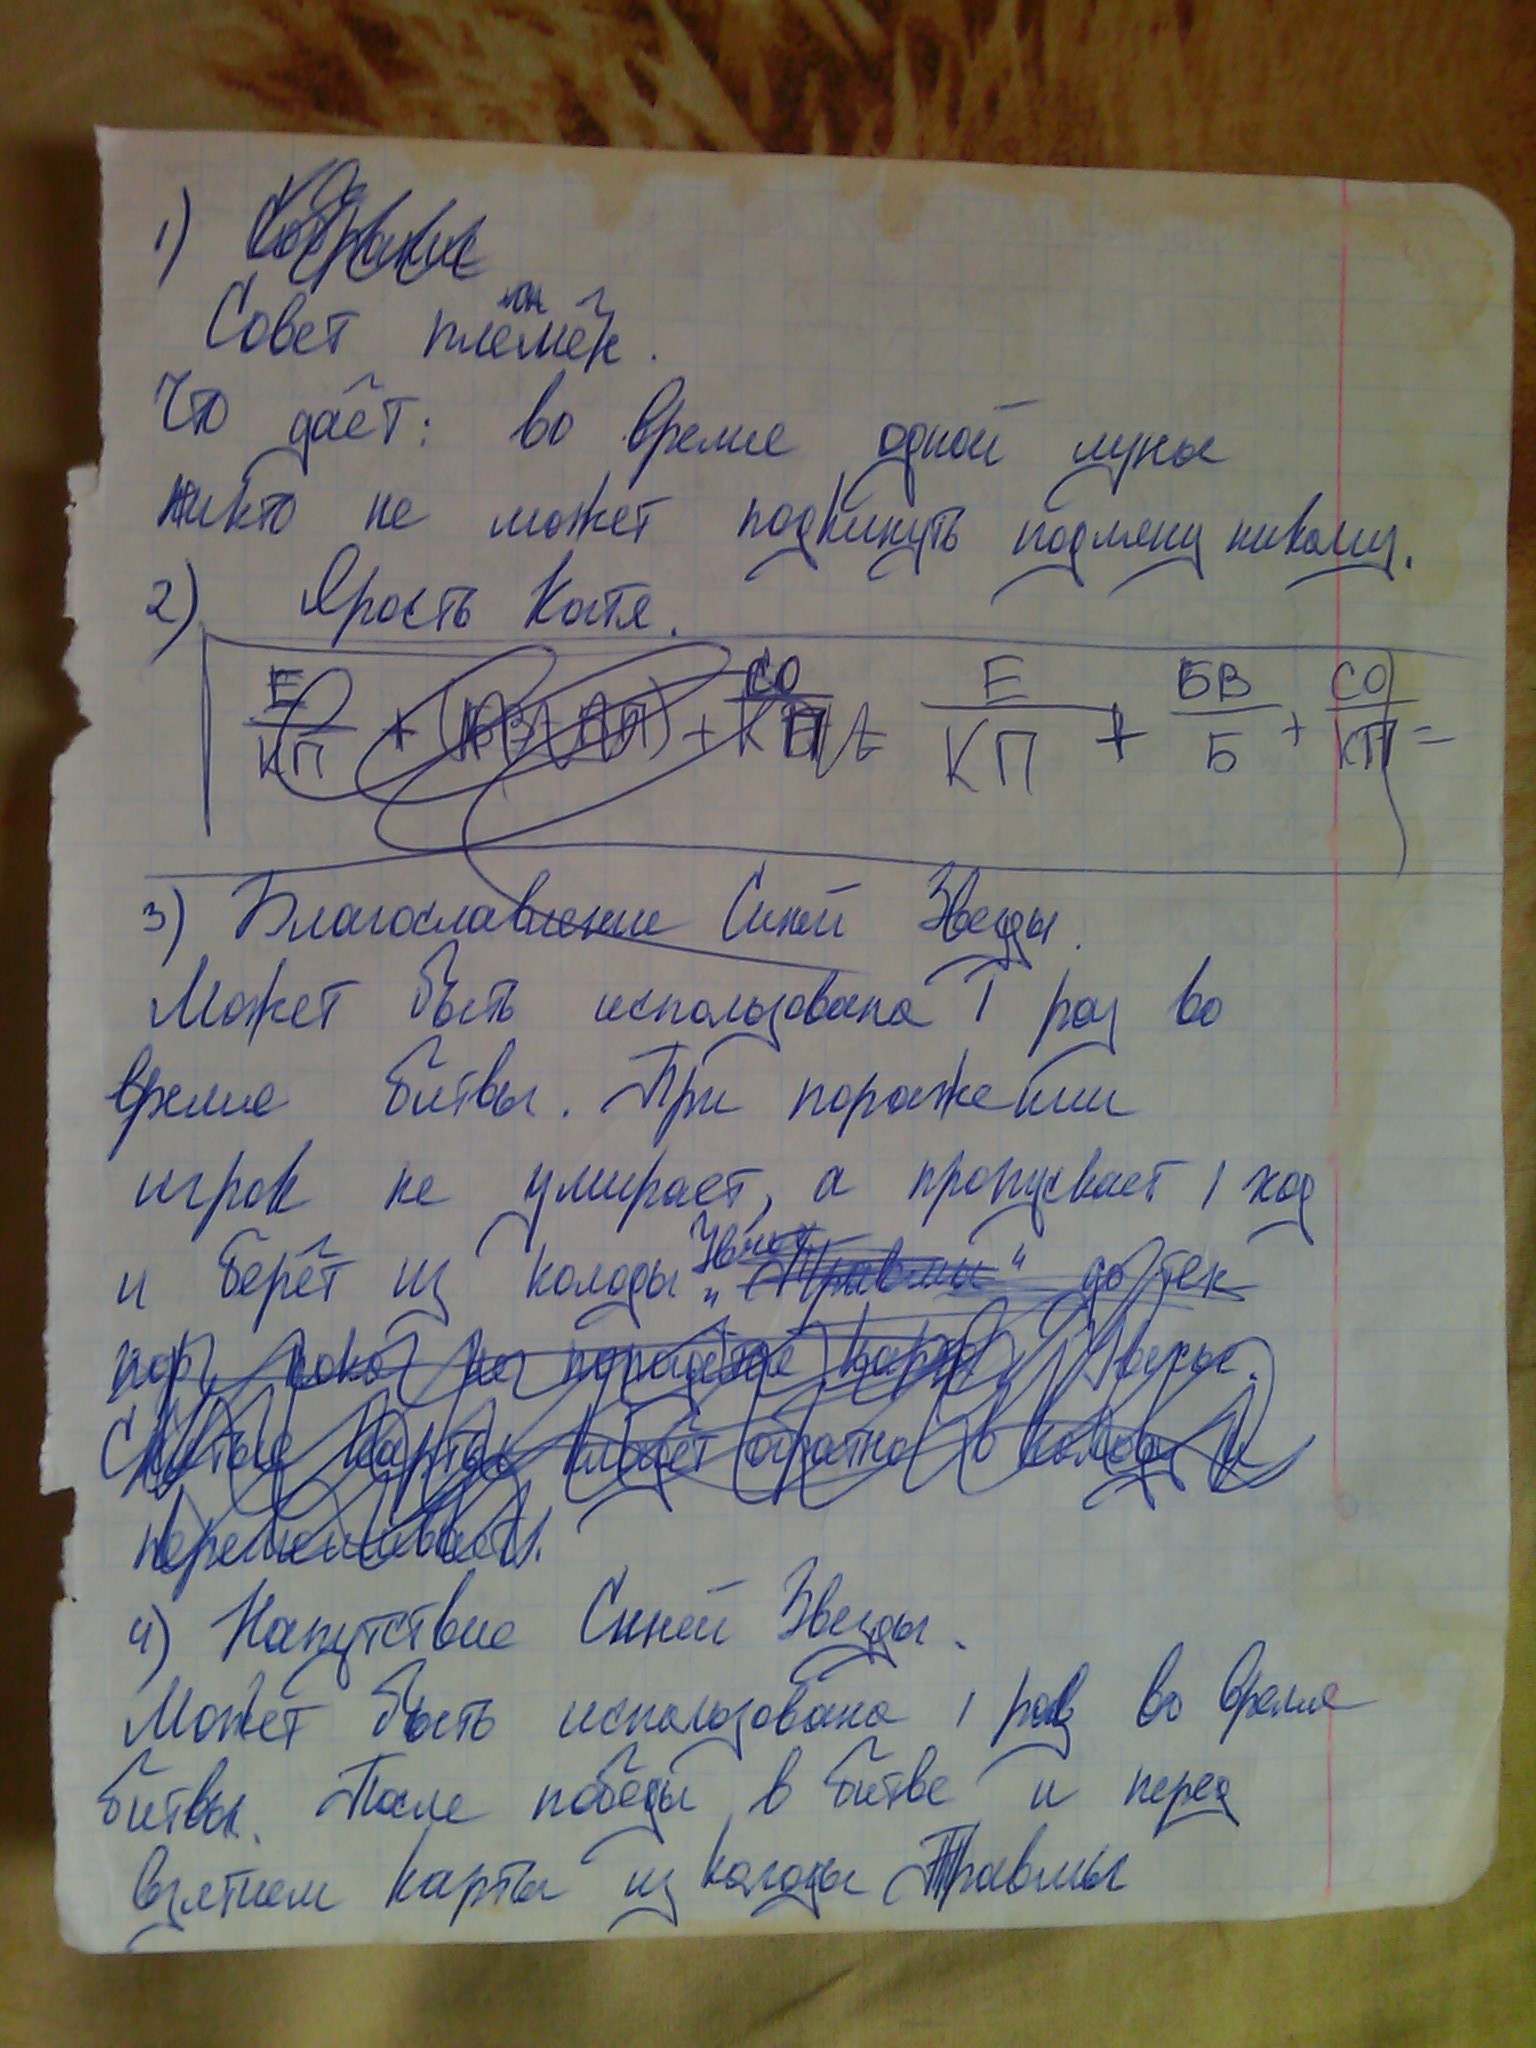 1) Собрание
Совет племён.
Что даёт: во время одной луны
никто не может подкинуть подляну никому.
2) Ярость Когтя.
Е/КП + СО/КП = Е/КП + БВ/Б + СО/КП =
3) Благославление Синей Звезды.
Может быть использована 1 раз во
время битвы. При поражении
игрок не умирает, а пропускает 1 ход
и берёт из колоды „Травмы“ до тех
пор, пока не попадётся карта
Снятые карты кладёт обратно в колоду и
перемешивает.
4) Напутствие Синей Звезды.
Может быть использована 1 раз во время
битвы. После победы в битве и перед
взятием карты из колоды Травмы